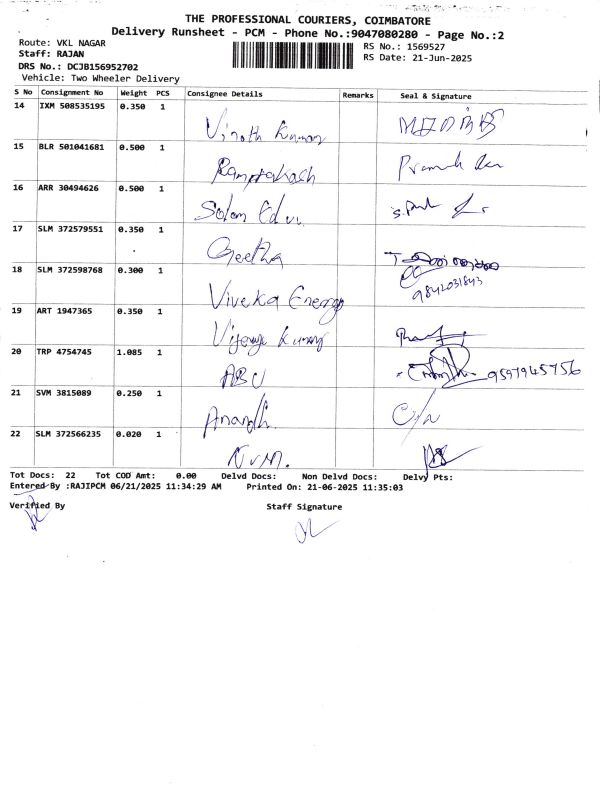 THE PROFESSIONAL COURIERS, COIMBATORE
Delivery Runsheet - PCM - Phone No.:9047080280 - Page No.:2
Route: VKL NAGAR
Staff: RAJAN
DRS No.: DCJB156952702
Vehicle: Two Wheeler Delivery
RS No.: 1569527
RS Date: 21-Jun-2025
S No Consignment No Weight PCS Consignee Details Remarks Seal & Signature
14 IXM 508535195 0.350 1 Vinoth Kumar
15 BLR 501041681 0.500 1 Ramprakash
16 ARR 30494626 0.500 1 Solom
17 SLM 372579551 0.350 1 Geetha
18 SLM 372598768 0.300 1 Viveka Energy 9842031843
19 ART 1947365 0.350 1 Kumar
20 TRP 4754745 1.085 1 ABU 9597945756
21 SVM 3815089 0.250 1 Ananth
22 SLM 372566235 0.020 1 NVM.
Tot Docs: 22 Tot COD Amt: 0.00 Delvd Docs: Non Delvd Docs: Delvy Pts:
Entered By :RAJIPCM 06/21/2025 11:34:29 AM Printed On: 21-06-2025 11:35:03
Verified By Staff Signature